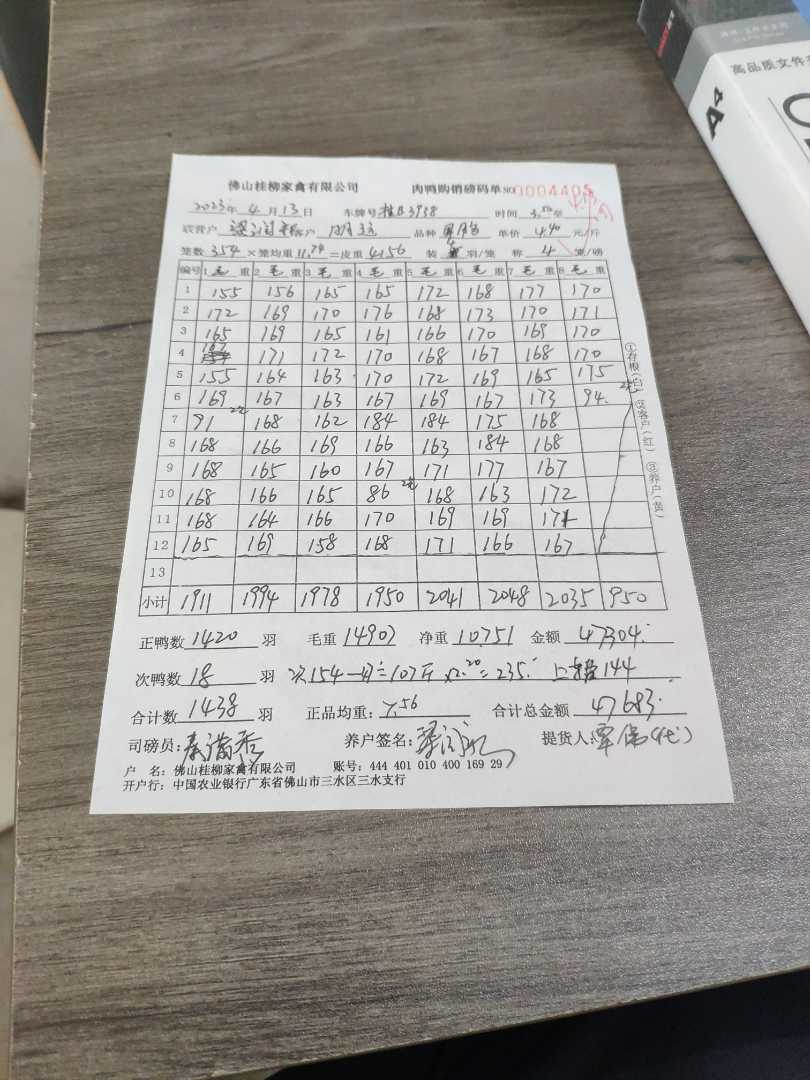 高品质文件
A4
佛山桂柳家禽有限公司 肉鸭购销磅码单 NO 0004405
2023年 4 月 13 日 车牌号 桂 3938 时间 3.50 至
联营户 客户 明 品种 单价 4.40 元/斤
笼数 354 ×笼均重 11.74 =皮重 4156 装 4 羽/笼 称 4 笼/磅
编号 1 毛 重 2 毛 重 3 毛 重 4 毛 重 5 毛 重 6 毛 重 7 毛 重 8 毛 重
1 155 156 165 165 172 168 177 170
2 172 169 170 176 168 173 170 171
3 165 169 165 161 166 170 169 170
4 167 171 172 170 168 167 168 170
5 155 164 163 170 172 169 165 175
6 169 167 163 167 169 167 173 94 2笼
7 91 2笼 168 162 184 184 175 168
8 168 166 169 166 163 184 168
9 168 165 160 167 171 177 167
10 168 166 165 86 2笼 168 163 172
11 168 164 166 170 169 169 171
12 165 169 158 168 171 166 167
13
小计 1911 1994 1978 1950 2041 2048 2035 950
①存根(白) ②客户(红) ③养户(黄)
正鸭数 1420 羽 毛重 14907 净重 10751 金额 47304.
次鸭数 18 羽 次154-47=107斤×2.20=235. 144
合计数 1438 羽 正品均重: 7.56 合计总金额 47683.
司磅员: 养户签名: 提货人:
户 名: 佛山桂柳家禽有限公司 账号: 444 401 010 400 169 29
开户行: 中国农业银行广东省佛山市三水区三水支行